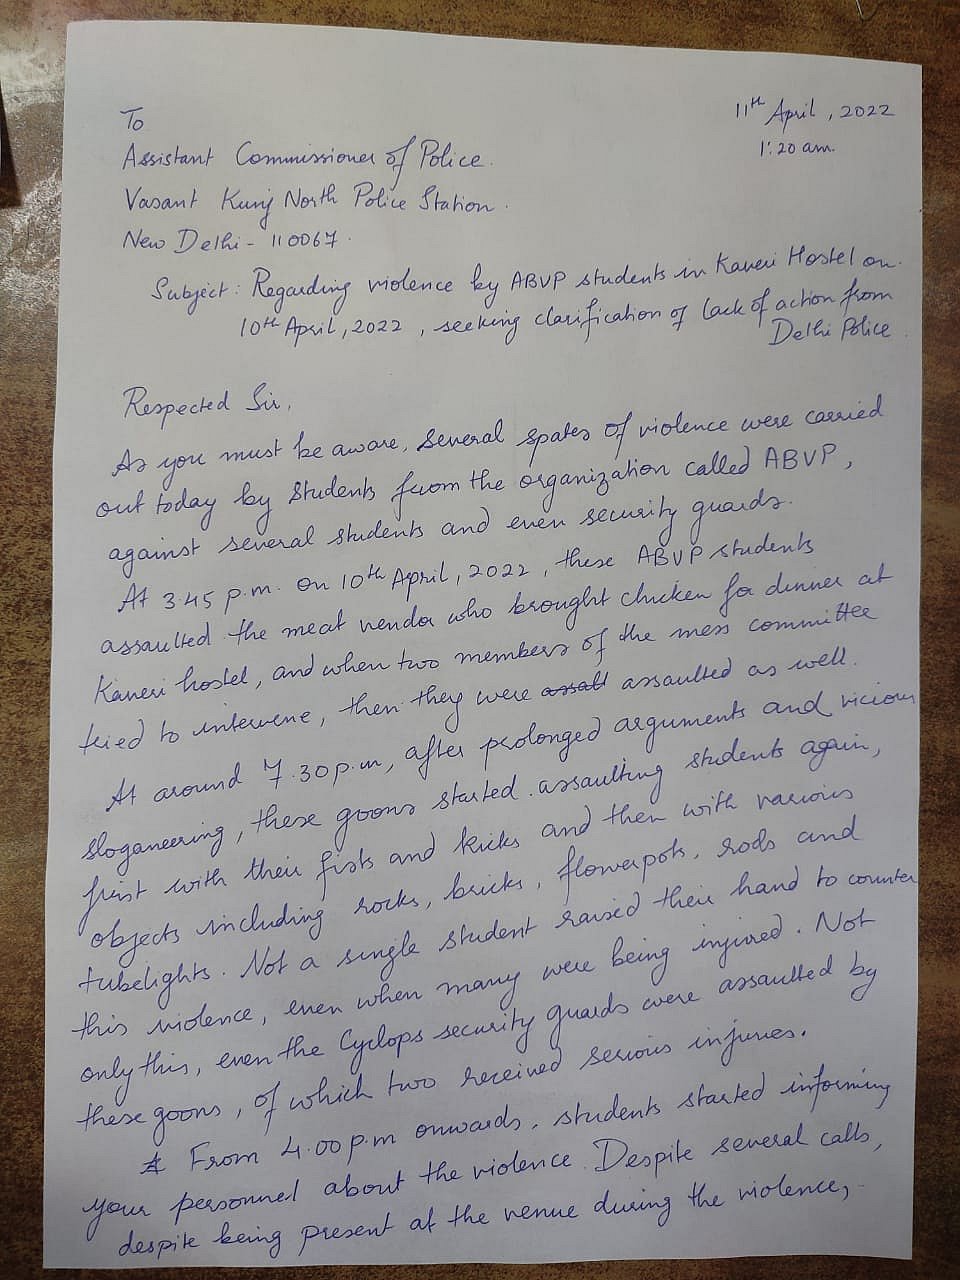 11th April, 2022
1:20 am.
To
Assistant Commissioner of Police.
Vasant Kunj North Police Station.
New Delhi - 110067.
Subject: Regarding violence by ABVP students in Kaveri Hostel on
10th April, 2022, seeking clarification of lack of action from
Delhi Police.
Respected Sir,
As you must be aware, several spates of violence were carried
out today by students from the organization called ABVP,
against several students and even security guards.
At 3.45 p.m. on 10th April, 2022, these ABVP students
assaulted the meat vendor who brought chicken for dinner at
Kaveri hostel, and when two members of the mess committee
tried to intervene, then they were assalt assaulted as well.
At around 7.30 p.m, after prolonged arguments and vicious
sloganeering, these goons started assaulting students again,
first with their fists and kicks and then with various
objects including rocks, bricks, flowerpots, rods and
tubelights. Not a single student raised their hand to counter
this violence, even when many were being injured. Not
only this, even the Cyclops security guards were assaulted by
these goons, of which two received serious injuries.
From 4.00 p.m onwards, students started informing
your personnel about the violence. Despite several calls,
despite being present at the venue during the violence,